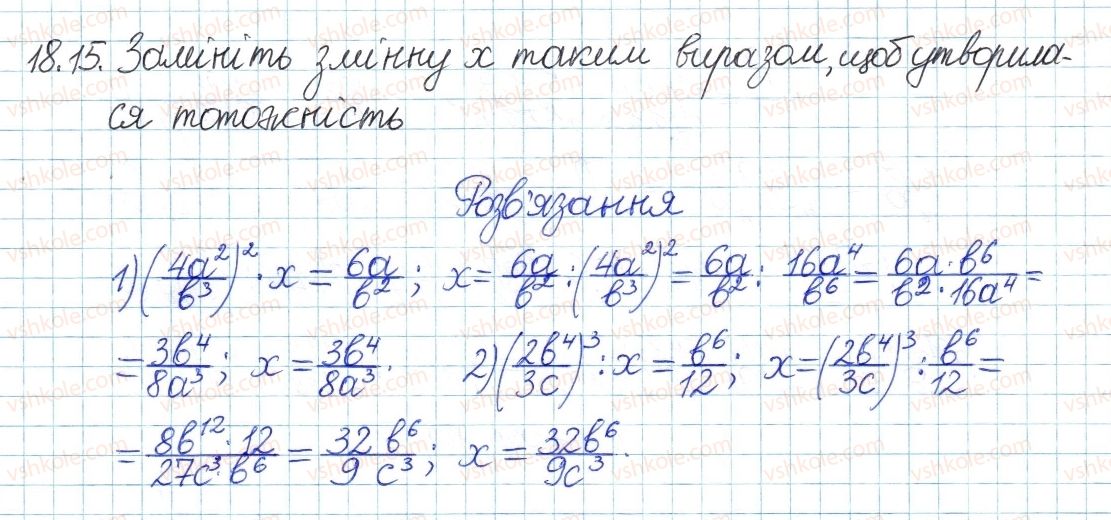 18.15. Замініть змінну x таким виразом, щоб утворила-
ся тотожність
Розв'язання
1) (4a²/b³)² · x = 6a/b²; x = 6a/b² : (4a²/b³)² = 6a/b² : 16a⁴/b⁶ = 6a · b⁶/b² · 16a⁴ =
= 3b⁴/8a³; x = 3b⁴/8a³. 2) (2b⁴/3c)³ : x = b⁶/12; x = (2b⁴/3c)³ : b⁶/12 =
= 8b¹² · 12/27c³ · b⁶ = 32 b⁶/9 c³; x = 32b⁶/9c³.